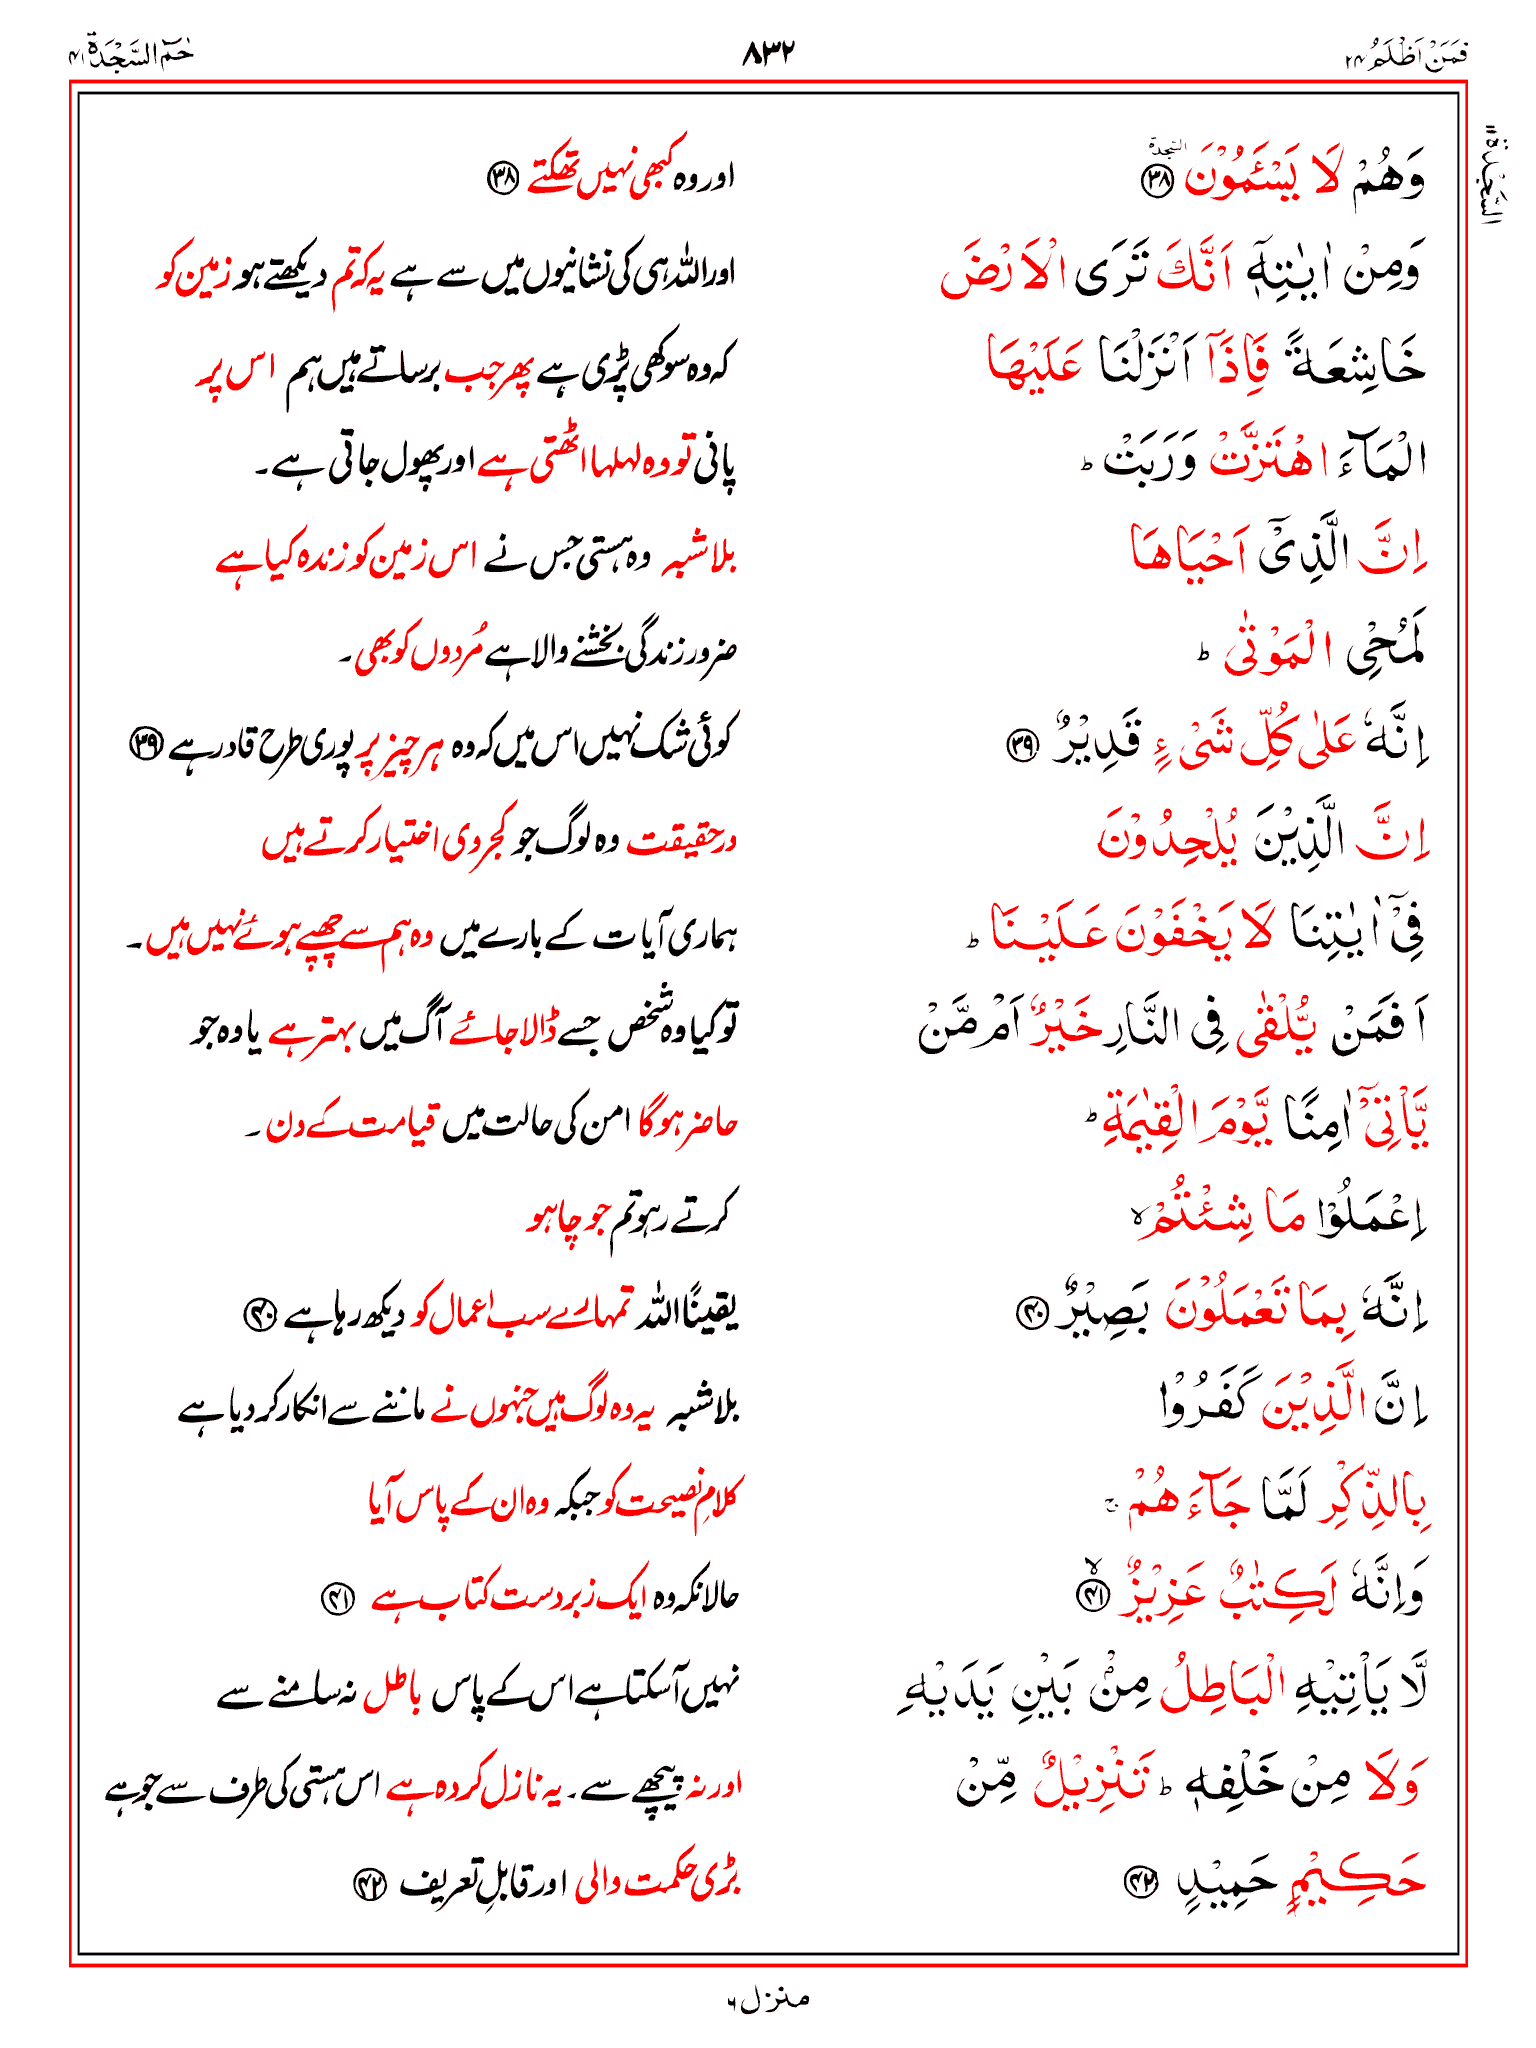 فَمَنْ اَظْلَمُ ۲۴
۸۳۲
حٰمٓ السَّجْدَة ۴۱
السَّجْدَة ۱۱
وَهُمْ لَا يَسْئَمُوْنَ السجدة ۳۸
اور وہ کبھی نہیں تھکتے ۳۸
وَمِنْ اٰيٰتِهٖٓ اَنَّكَ تَرَى الْاَرْضَ
اور اللہ ہی کی نشانیوں میں سے ہے یہ کہ تم دیکھتے ہو زمین کو
خَاشِعَةً فَاِذَآ اَنْزَلْنَا عَلَيْهَا
کہ وہ سوکھی پڑی ہے پھر جب برساتے ہیں ہم اس پر
الْمَآءَ اهْتَزَّتْ وَرَبَتْ ؕ
پانی تو وہ لہلہا اٹھتی ہے اور پھول جاتی ہے۔
اِنَّ الَّذِيْٓ اَحْيَاهَا
بلاشبہ وہ ہستی جس نے اس زمین کو زندہ کیا ہے
لَمُحْيِ الْمَوْتٰى ؕ
ضرور زندگی بخشنے والا ہے مُردوں کو بھی۔
اِنَّهٗ عَلٰى كُلِّ شَيْءٍ قَدِيْرٌ ۳۹
کوئی شک نہیں اس میں کہ وہ ہر چیز پر پوری طرح قادر ہے ۳۹
اِنَّ الَّذِيْنَ يُلْحِدُوْنَ
درحقیقت وہ لوگ جو کجروی اختیار کرتے ہیں
فِيْٓ اٰيٰتِنَا لَا يَخْفَوْنَ عَلَيْنَا ؕ
ہماری آیات کے بارے میں وہ ہم سے چھپے ہوئے نہیں ہیں۔
اَفَمَنْ يُّلْقٰى فِي النَّارِ خَيْرٌ اَمْ مَّنْ
تو کیا وہ شخص جسے ڈالا جائے آگ میں بہتر ہے یا وہ جو
يَّاْتِيْٓ اٰمِنًا يَّوْمَ الْقِيٰمَةِ ؕ
حاضر ہوگا امن کی حالت میں قیامت کے دن۔
اِعْمَلُوْا مَا شِئْتُمْ ۙ
کرتے رہو تم جو چاہو
اِنَّهٗ بِمَا تَعْمَلُوْنَ بَصِيْرٌ ۴۰
یقینًا اللہ تمہارے سب اعمال کو دیکھ رہا ہے ۴۰
اِنَّ الَّذِيْنَ كَفَرُوْا
بلاشبہ یہ وہ لوگ ہیں جنہوں نے ماننے سے انکار کر دیا ہے
بِالذِّكْرِ لَمَّا جَآءَهُمْ ۚ
کلامِ نصیحت کو جبکہ وہ ان کے پاس آیا
وَاِنَّهٗ لَكِتٰبٌ عَزِيْزٌ ۙ ۴۱
حالانکہ وہ ایک زبردست کتاب ہے ۴۱
لَّا يَاْتِيْهِ الْبَاطِلُ مِنْۢ بَيْنِ يَدَيْهِ
نہیں آسکتا ہے اس کے پاس باطل نہ سامنے سے
وَلَا مِنْ خَلْفِهٖ ؕ تَنْزِيْلٌ مِّنْ
اور نہ پیچھے سے۔ یہ نازل کردہ ہے اس ہستی کی طرف سے جو ہے
حَكِيْمٍ حَمِيْدٍ ۴۲
بڑی حکمت والی اور قابلِ تعریف ۴۲
منزل ۶